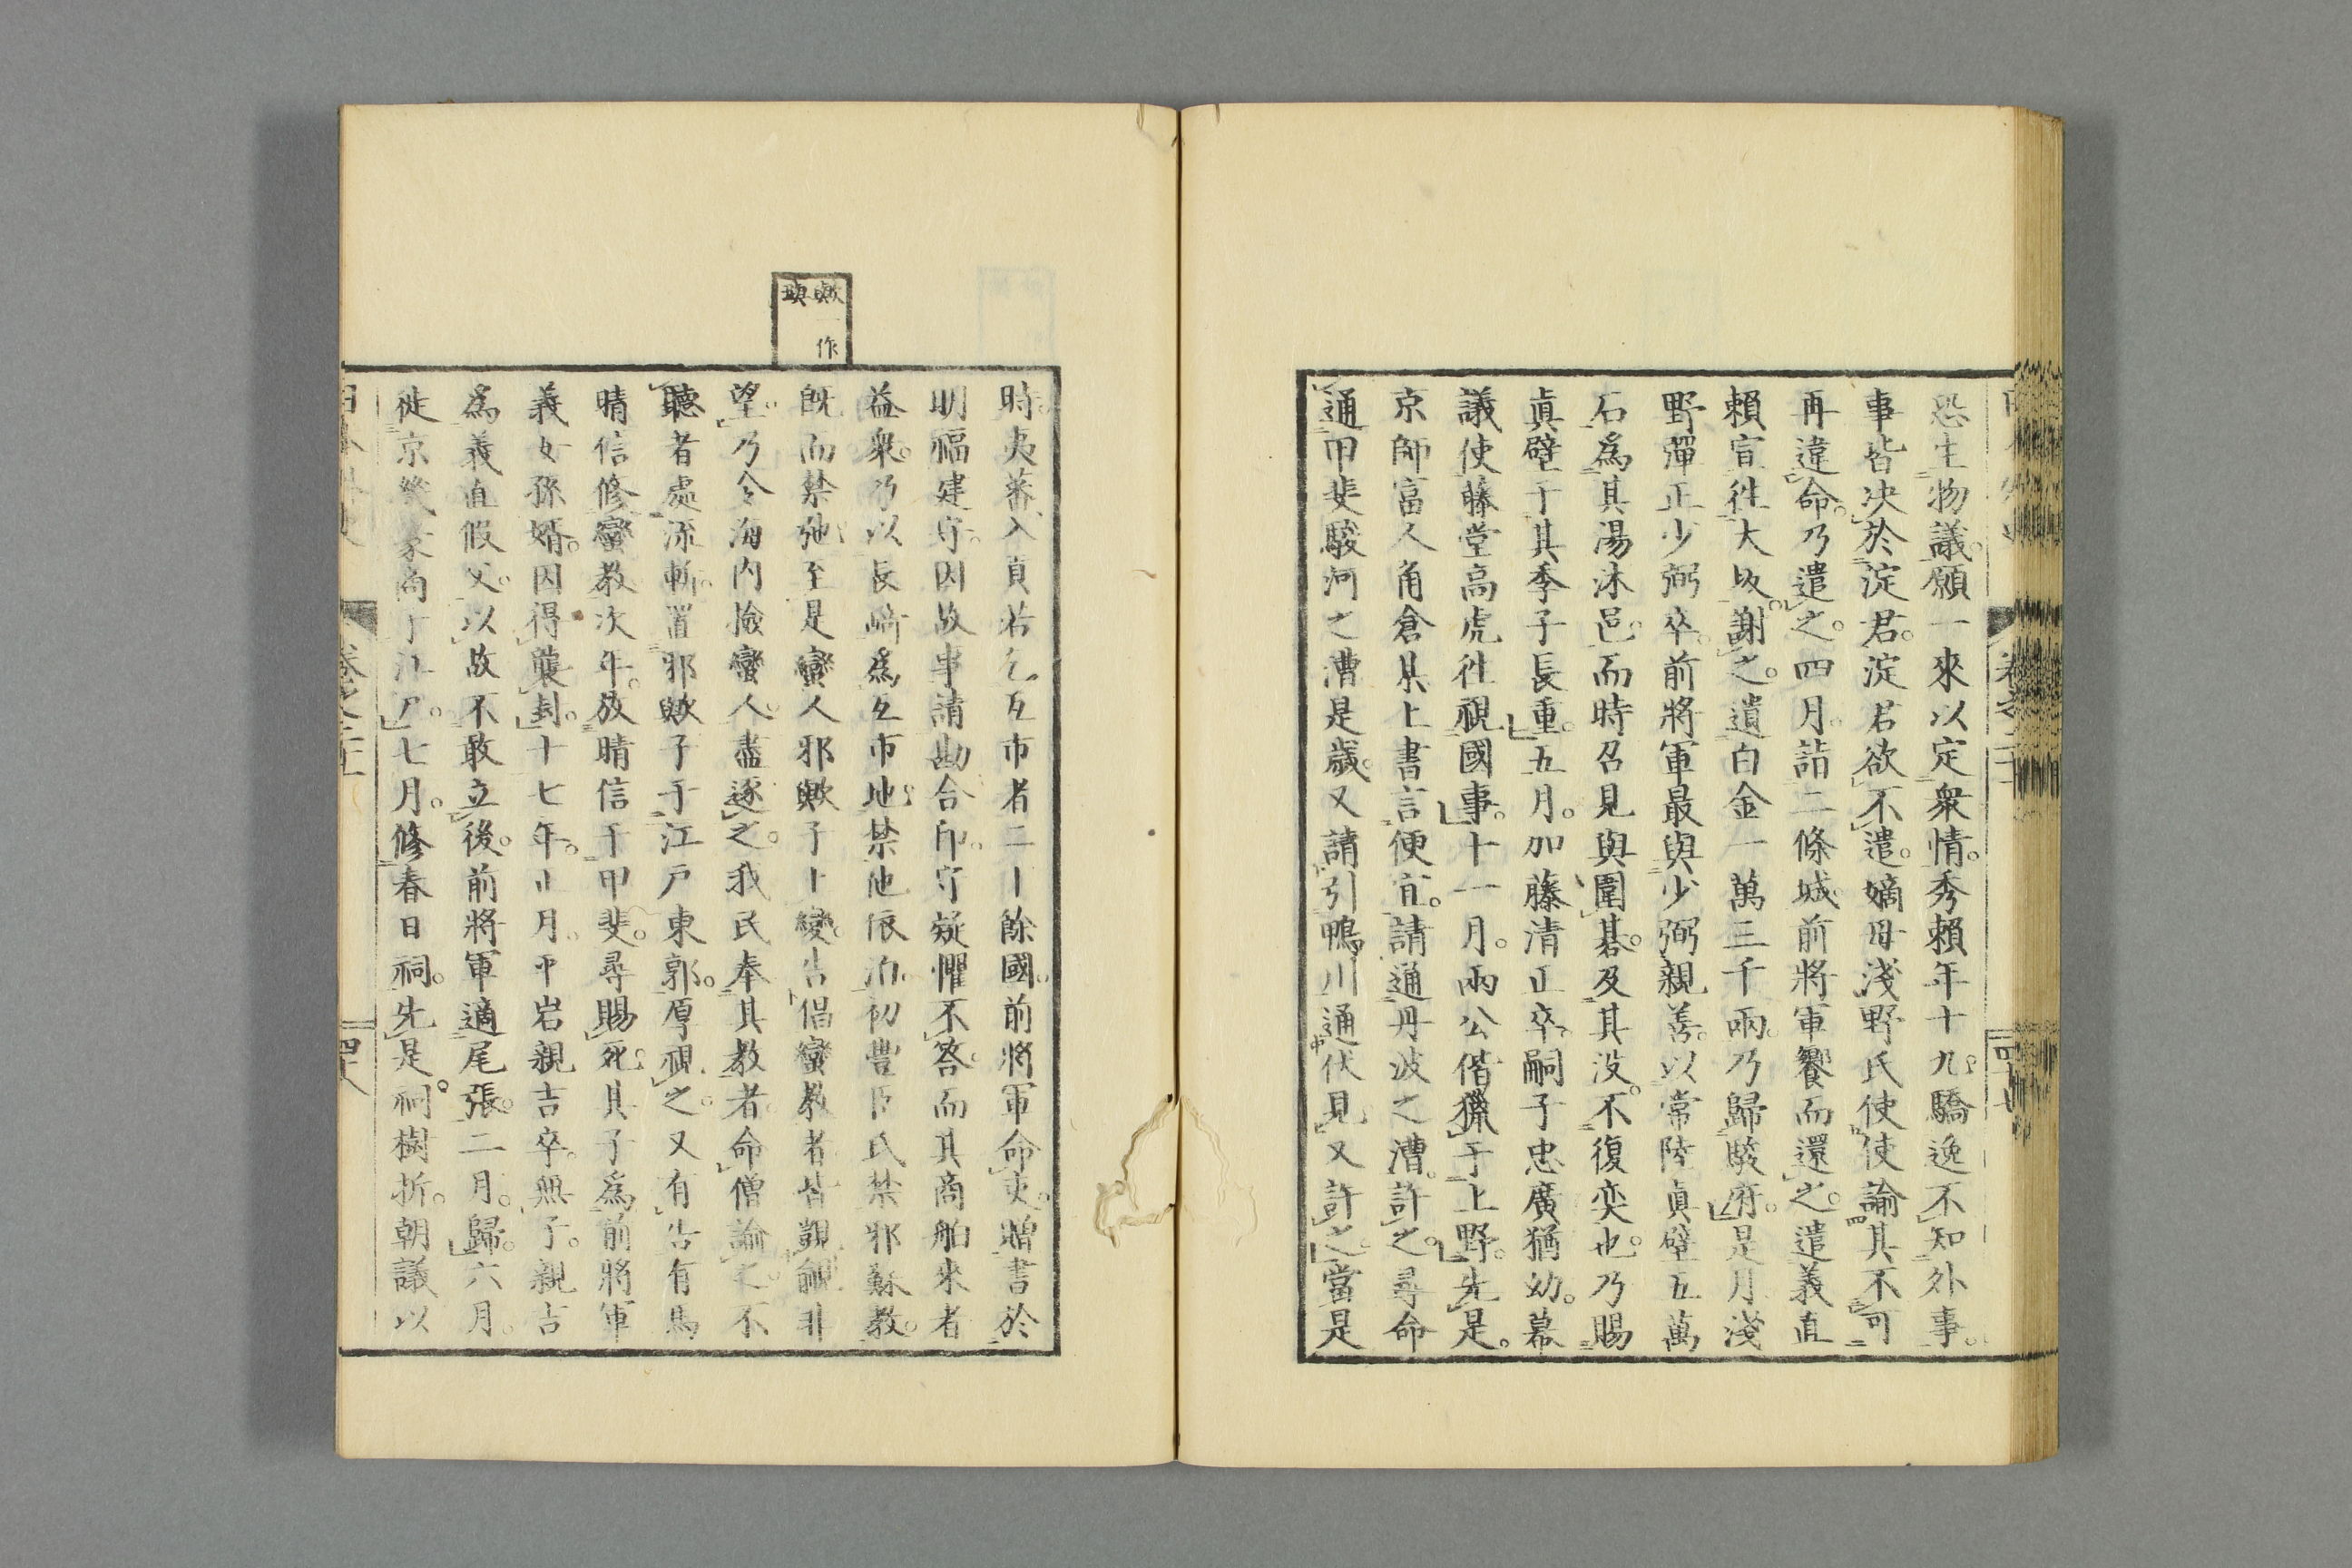 恐生物議。願一來以定衆情。秀賴年十九。驕逸不知外事。
事皆决於淀君。淀君欲不遣。嫡母淺野氏使使諭其不可
再違命。乃遣之。四月。詣二條城。前將軍饗而還之。遣義直
賴宣徃大坂。謝之。遺白金一萬三千兩。乃歸駿府。是月淺
野彈正少弼卒。前將軍最與少弼親善。以常陸眞壁五萬
石爲其湯沐邑。而時召見與圍碁。及其没。不復奕也。乃賜
眞壁于其季子長重。五月。加藤清正卒。嗣子忠廣猶幼。幕
議使藤堂高虎徃視國事。十一月。兩公偕獵于上野。先是。
京師富人角倉某上書言便宜。請通丹波之漕。許之。尋命
通甲斐駿河之漕是歲。又請引鴨川通伏見。又許之。當是
時。夷蕃入貢若乞互市者二十餘國。前將軍命吏。贈書於
明福建守。因故事請勘合印。守疑懼不答。而其商舶來者
益衆。乃以長崎爲互市地。禁他依泊。初豊臣氏禁邪蘇教。
既而禁弛。至是蠻人邪歟子上變。告倡蠻教者皆覬覦非
望。乃令海内撿蠻人。盡逐之。我民奉其教者。命僧諭之。不
聽者處流斬。置邪歟子于江戸東郭。厚視之。又有告有馬
晴信修蠻教。次年。放晴信于甲斐。尋賜死。其子爲前將軍
義女孫婿。因得襲封。十七年。正月。平岩親吉卒。無子。親吉
爲義直假父。以故不敢立後。前將軍適尾張。二月。歸。六月。
徙京畿豪商于江戸。七月。修春日祠。先是。祠樹折。朝議以
歟一作
璵
卷之二十
四十八